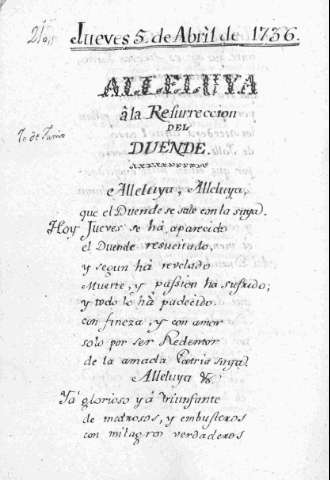 Jueves 5. de Abril de 1736.
ALLELUYA
â la Resurreccion
DEL
DUENDE.
Alleluya, Alleluya,
que el Duende se sale con la suya.
Hoy Jueves se há aparecido
el Duende resucitado,
y segun há revelado
Muerte, y passion ha sufrido;
y todo lo há padecido
con fineza, y con amor
solo por ser Redentor
de la amada Patria suya
Alleluya &c.
Yá glorioso y á triunfante
de medrosos, y embusteros
con milagros verdaderos